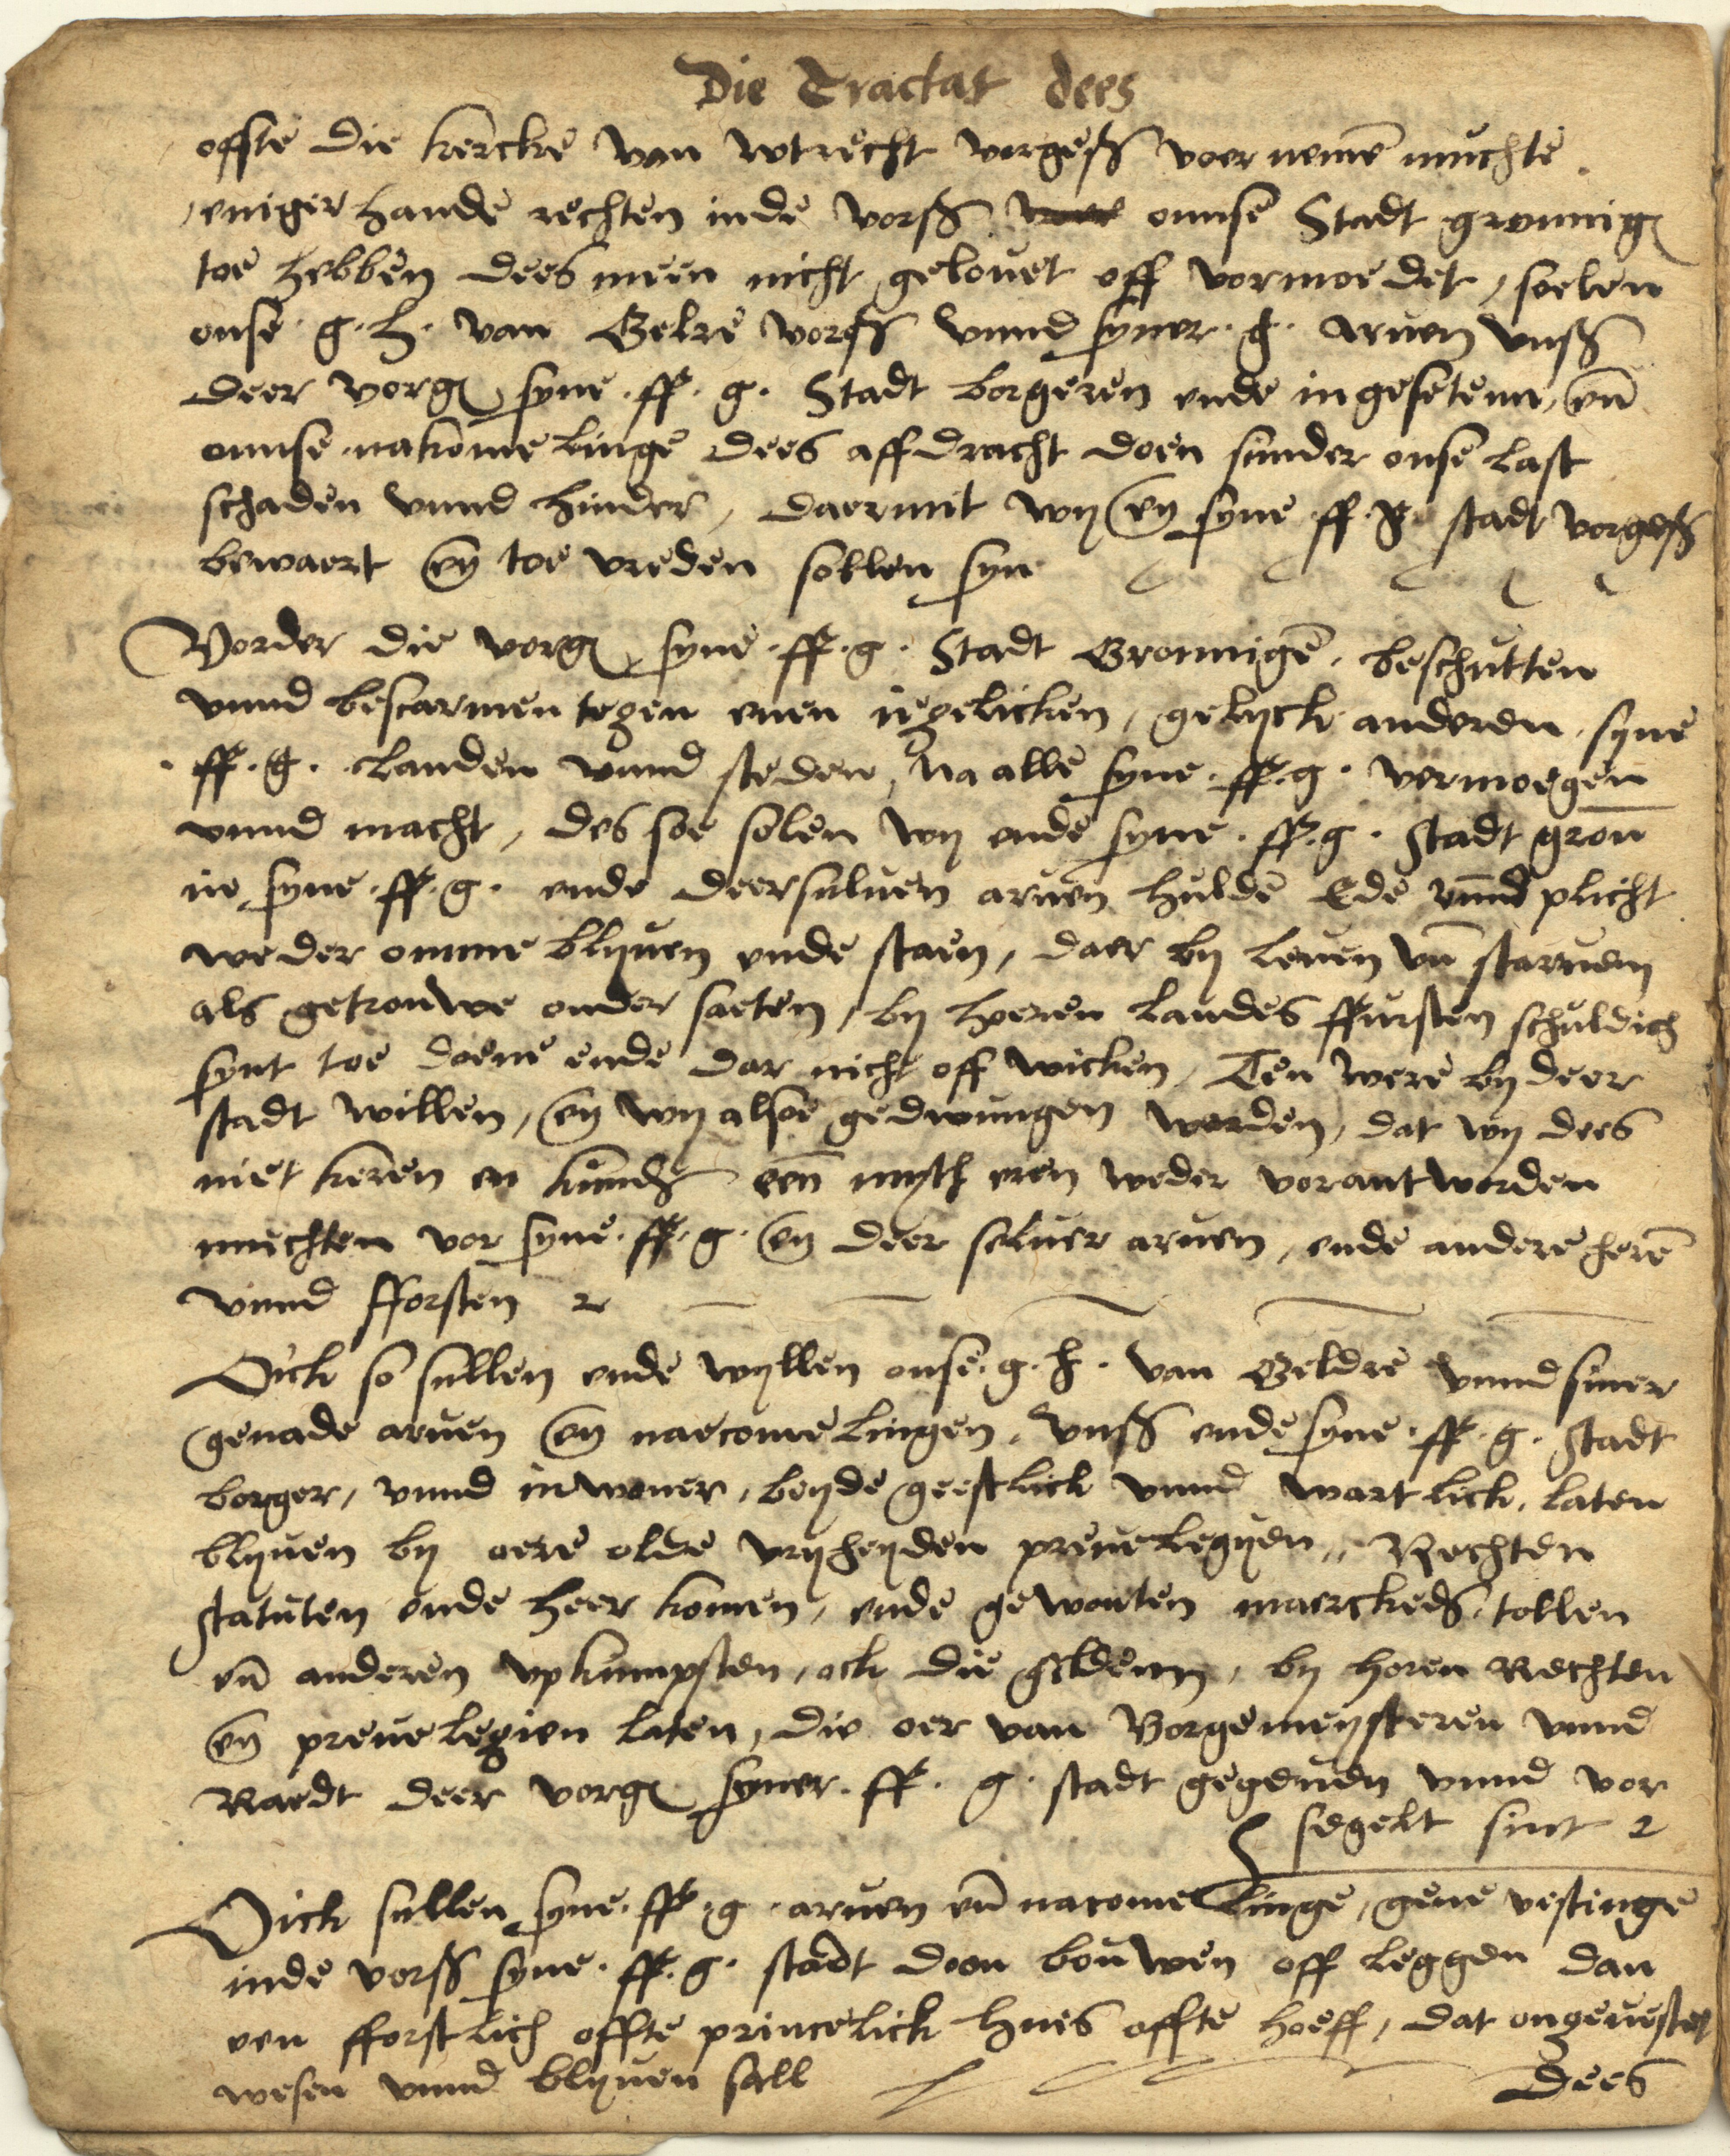 Die Tractat dees
offte die kercke van wtrecht vorgess voer nemē muchte
eniger hande rechten inde vorss onnse Stadt gronnig
toe hebben dees men nicht gelouet off vormoedet, soelen
onse g. h. van Gelre vorss vnnd syner. g. aruen vnss
deer vorg syne. ff. g. Stadt borgeren ende ingesetenn, vn̄
onnse nakomelinge dees affdracht doen sunder onse last
schaden vnnd hinder, daermit wy en syne ff. g. stadt vorgess
bewaert en toe vreden sollen syn
Vorder die vorg syne. ff. g. Stadt Gronnigē, beschutten
vnnd bescarmen tegen enen iegelicken, gelyck anderen syne
ff. g. landen vnnd steden, Na alle syne. ff. g. vermoegen
vnnd macht, des soe solen wy ende syne. ff. g. stadt gron̄
in syne. ff. g. ende deersuluen aruen hulde Ede vnnd plicht
weder omme blyuen ende staen, daer by leuen vn̄ staruen
als getrouwe ondersaeten, by heren landes ffursten schuldich
synt toe doene ende dar nicht off wicken, Ten were by deer
stadt willen, en wy alsoe gedwungen worden, dat wy dees
niet keren en kunds een myth eren weder vorantworden
muchten vor syne. ff. g. en deer seluer aruen, ende andere herē
vnnd fforsten
Oick so sullen ende wyllen onse. g. h. van Geldre vnnd siner
genade aruen en naecomelingen, vnss ende syne. ff. g. stadt
borger, vnnd inwoner, beyde geestlick vnnd wartlick, laten
blyuen by oere olde vryheyden preuelegyen, Rechten
statuten ende heer komen, ende gewonten marckeds, tollen
vn̄ anderen vpkumpsten, ock die gildenn, by horen Rechten
en preuelegien laten, die oer van Borgemeysteren vnnd
Raedt deer vorg syner. ff. g. stadt gegeuen vnnd vor
segelt sint
Oick sullen syne. ff. g. aruen vn̄ nacomelinge, gene vestinge
inde vorss syne. ff. g. stadt doen bouwen off leggen dan
een fforstlich offte princelick hues offte hoeff, dat ongeuestet
wesen vnnd blyuen sall
Dees